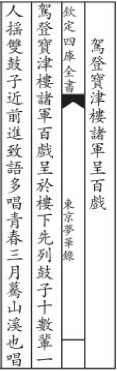 駕登寶津樓諸軍呈百戲
欽定四庫全書
東京夢華錄
駕登寶津樓諸軍百戲呈於樓下先列鼓子十數輩一
人搖雙鼓子近前進致語多唱青春三月驀山溪也唱